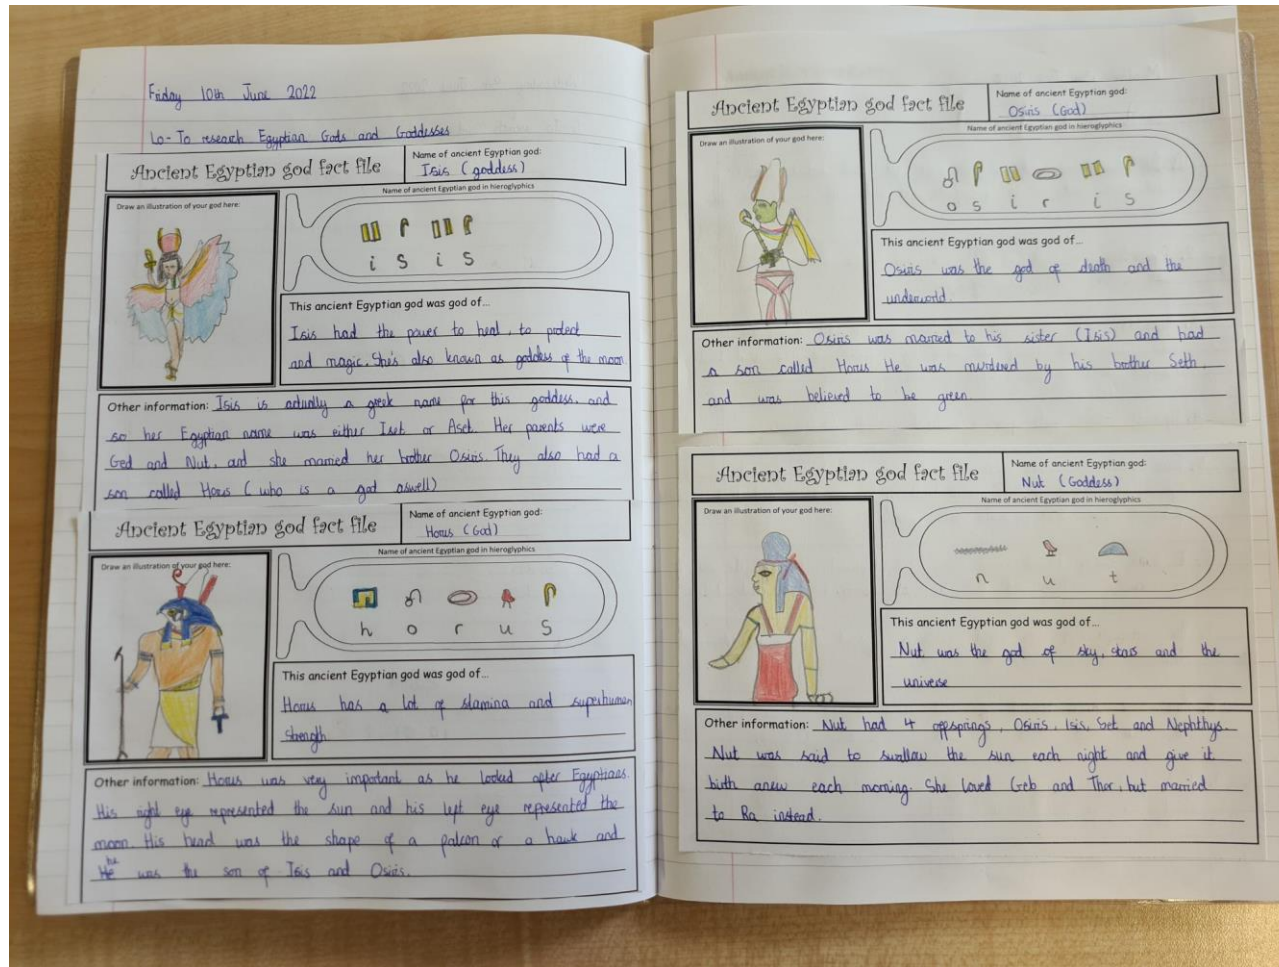 Friday 10th June 2022
Lo- To research Egyptian Gods and Goddesses
Ancient Egyptian god fact file
Name of ancient Egyptian god:
Isis (goddess)
Draw an illustration of your god here:
Name of ancient Egyptian god in hieroglyphics
i s i s
This ancient Egyptian god was god of...
Isis had the power to heal, to protect
and magic. She's also known as goddess of the moon
Other information: Isis is actually a greek name for this goddess. and
so her Egyptian name was either Iset or Aset. Her parents were
Ged and Nut, and she married her brother Osiris. They also had a
son called Horus (who is a god aswell)
Ancient Egyptian god fact file
Name of ancient Egyptian god:
Horus (God)
Draw an illustration of your god here:
Name of ancient Egyptian god in hieroglyphics
h o r u s
This ancient Egyptian god was god of...
Horus has a lot of stamina and superhuman
strength.
Other information: Horus was very important as he looked after Egyptians.
His right eye represented the sun and his left eye represented the
moon. His head was the shape of a falcon or a hawk and
he
He was the son of Isis and Osiris.
Ancient Egyptian god fact file
Name of ancient Egyptian god:
Osiris (God)
Draw an illustration of your god here:
Name of ancient Egyptian god in hieroglyphics
o s i r i s
This ancient Egyptian god was god of...
Osiris was the god of death and the
underworld.
Other information: Osiris was married to his sister (Isis) and had
a son called Horus He was murdered by his brother Seth
and was believed to be green
Ancient Egyptian god fact file
Name of ancient Egyptian god:
Nut (Goddess)
Draw an illustration of your god here:
Name of ancient Egyptian god in hieroglyphics
n u t
This ancient Egyptian god was god of...
Nut, was the god of sky, stars and the
universe
Other information: Nut had 4 offsprings, Osiris, Isis, Set and Nephthys.
Nut was said to swallow the sun each night and give it
birth anew each morning. She loved Geb and Thor, but married
to Ra instead.